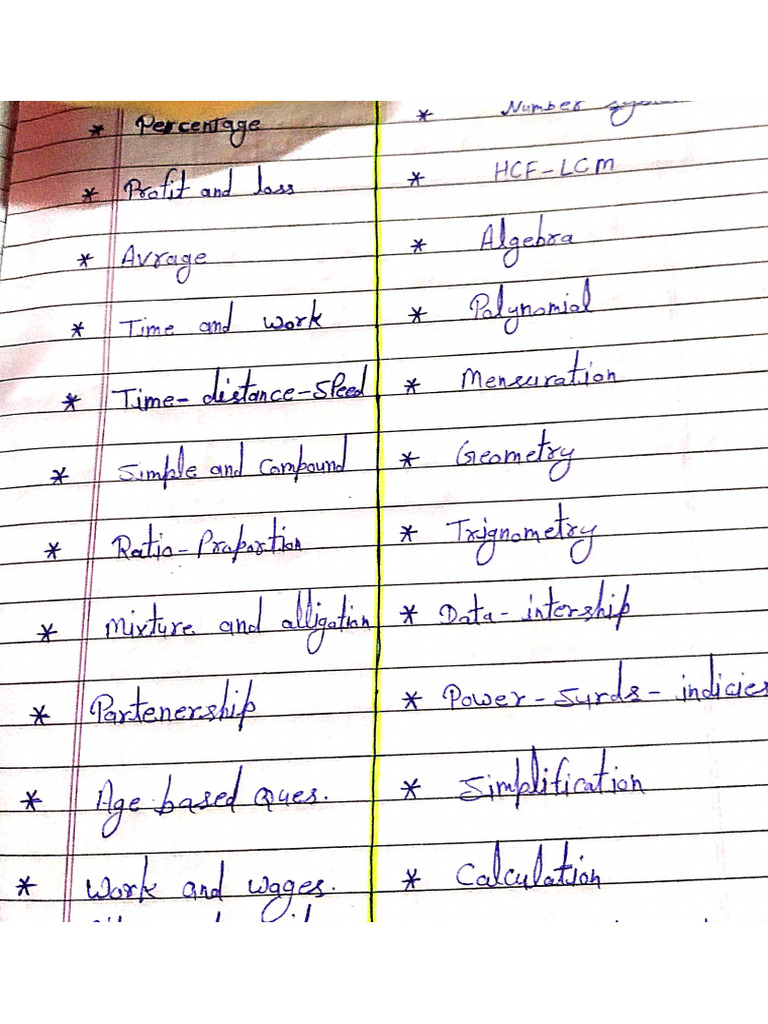 * Percentage
* Profit and loss
* Avrage
* Time and work
* Time-distance-Speed
* Simple and Compound
* Ratio-Proportion
* mixture and alligation
* Partenership
* Age based Ques.
* Work and wages.
* Number
* HCF-LCM
* Algebra
* Polynomial
* Mensuration
* Geometry
* Trignometry
* Data-intership
* Power-Surds-indicies
* Simplification
* Calculation